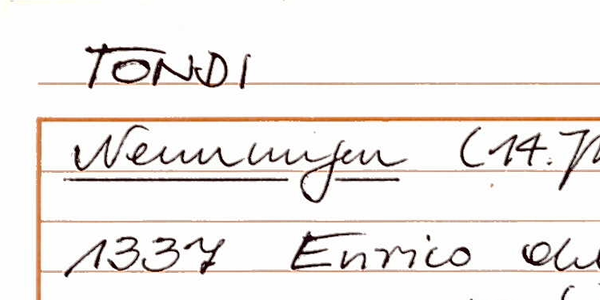 TONDI
Nennungen (14. Jh
1337 Enrico del